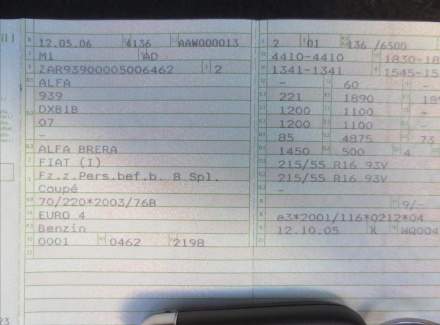 12.05.06 4136 AAW000013
M1 AD
ZAR93900005006462 2
ALFA
939
DXB1B
07
-
ALFA BRERA
FIAT (I)
Fz.z.Pers.bef.b. 8 Spl.
Coupé
70/220*2003/76B
EURO 4
Benzin
0001 0462 2198
2 01 136 /6500
4410-4410 1830-18
1341-1341 1545-15
- 60 -
221 1890 18
1200 1100 -
1200 1100 -
85 4875 73
1450 500 4
215/55 R16 93V
215/55 R16 93V
-
9/-
e3*2001/116*0212*04
12.10.05 K HQ004